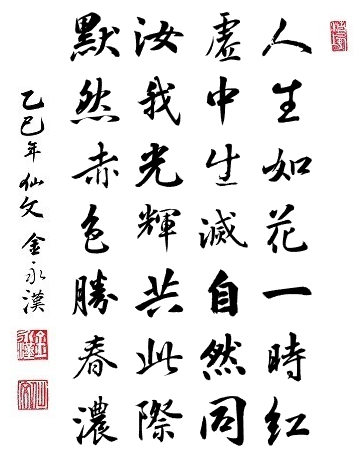 人生如花一時紅
虛中生滅自然同
汝我光輝共此際
默然赤色勝春濃
乙巳年 仙文 金永漢